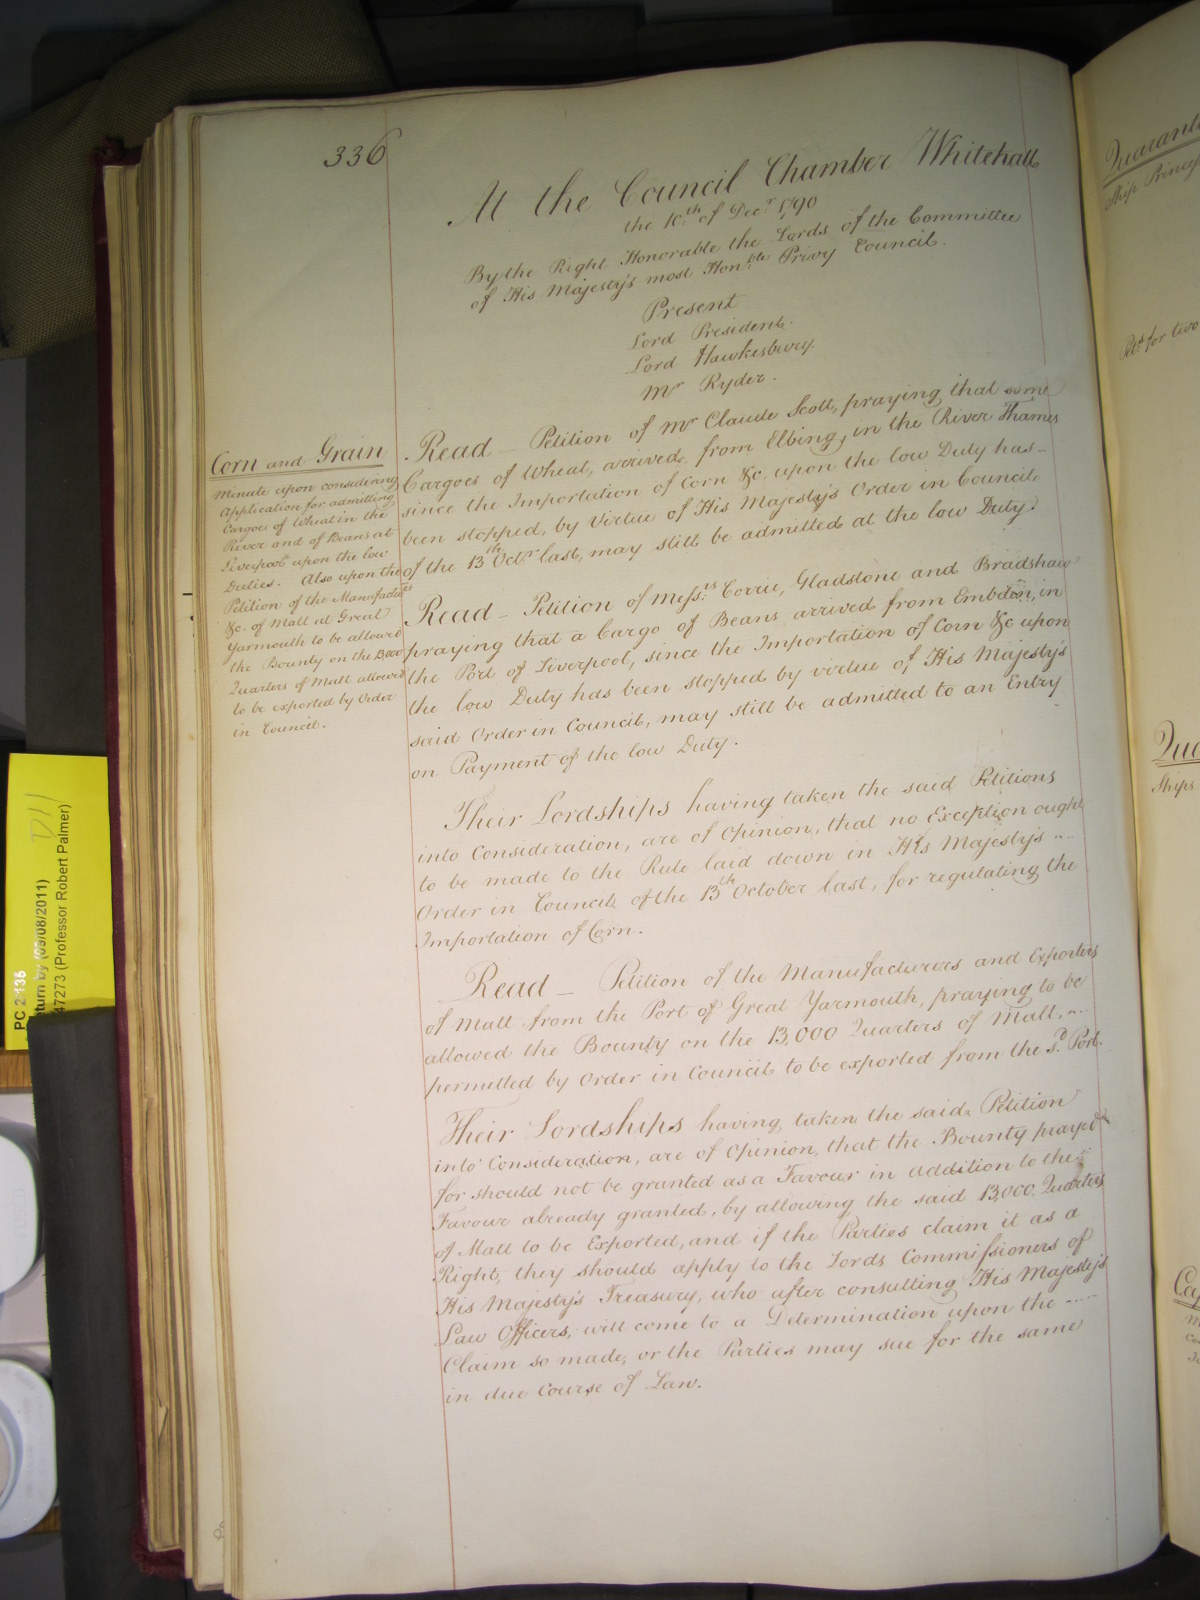 336
At the Council Chamber Whitehall
the 10th of Decr 1790
By the Right Honorable the Lords of the Committee
of His Majesty's most Honble Privy Council.
Present
Lord President.
Lord Hawkesbury.
Mr Ryder.
Corn and Grain
Minute upon considering
Application for admitting
Cargoes of Wheat in the
River and of Beans at
Liverpool upon the low
Duties. Also upon the
Petition of the Manufactrs
&c. of Malt at Great
Yarmouth to be allowed
the Bounty on the 13,000
Quarters of Malt allowed
to be exported by Order
in Council.
Read - Petition of Mr Claude Scott, praying that some
Cargoes of Wheat, arrived from Elbing, in the River Thames
since the Importation of Corn &c. upon the low Duty has
been stopped, by Virtue of His Majesty's Order in Council
of the 13th Octr last, may still be admitted at the low Duty.
Read - Petition of Messrs Corrie, Gladstone and Bradshaw
praying that a Cargo of Beans arrived from Embden, in
the Port of Liverpool, since the Importation of Corn &c upon
the low Duty has been stopped by virtue of His Majesty's
said Order in Council, may still be admitted to an Entry
on Payment of the low Duty.
Their Lordships having taken the said Petitions
into Consideration, are of Opinion, that no Exception ought
to be made to the Rule laid down in His Majesty's
Order in Council of the 13th October last, for regulating the
Importation of Corn.
Read - Petition of the Manufacturers and Exporters
of Malt from the Port of Great Yarmouth, praying to be
allowed the Bounty on the 13,000 Quarters of Malt,
permitted by Order in Council to be exported from the sd Port.
Their Lordships having taken the said Petition
into Consideration, are of Opinion, that the Bounty prayed
for should not be granted as a Favour in addition to the
Favour already granted, by allowing the said 13,000 Quarters
of Malt to be Exported, and if the Parties claim it as a
Right, they should apply to the Lords Commissioners of
His Majesty's Treasury, who after consulting His Majesty's
Law Officers, will come to a Determination upon the
Claim so made, or the Parties may sue for the same
in due Course of Law.
Quarant
Ship Princes
Petn for two
Qua
Ships
Cap
PC 2 135
turn by (09/08/2011)
47273 (Professor Robert Palmer)